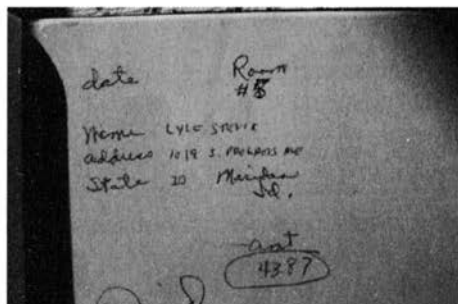 date
Room
#5
Name LYLE STEVIK
address 1019 S. PROGRESS AVE
State ID Meridian
Id.
amt
43.87